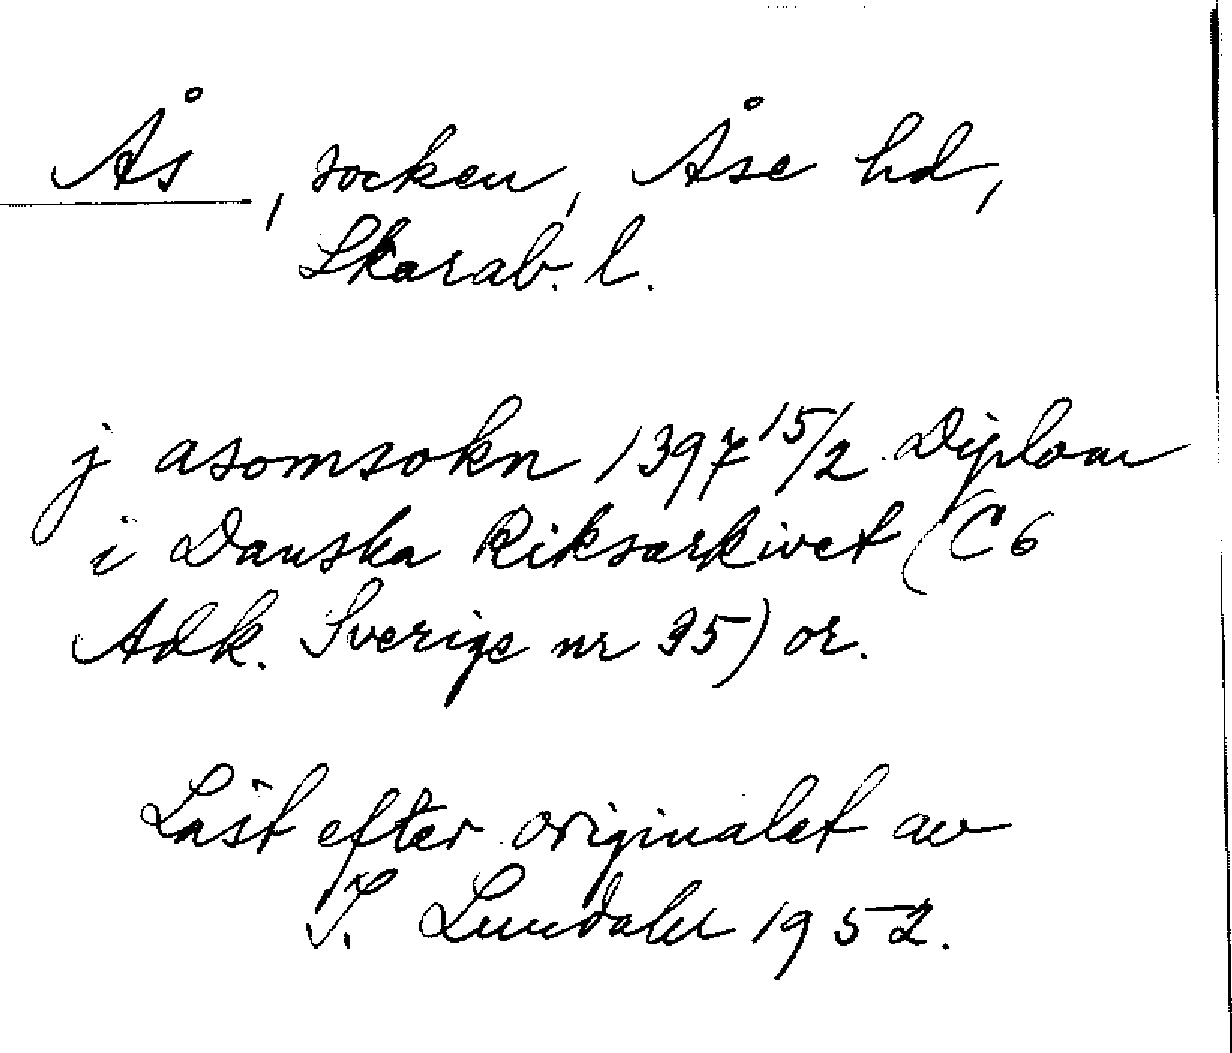 Ås, socken, Åse hd,
Skarab. l.
j asomsokn 1397 15/2 Diplom
i Danska Riksarkivet (C6
Adk. Sverige nr 35) or.
Läst efter originalet av
I. Lundahl 1952.